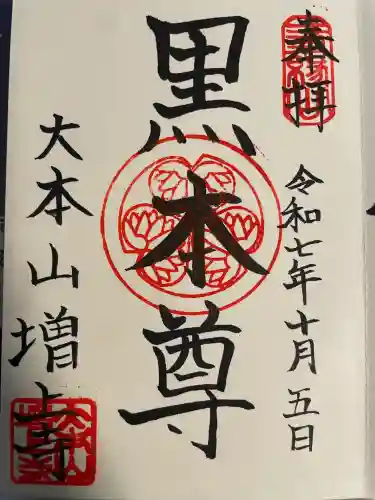 奉拝
令和七年十月五日
黒本尊
大本山増上寺